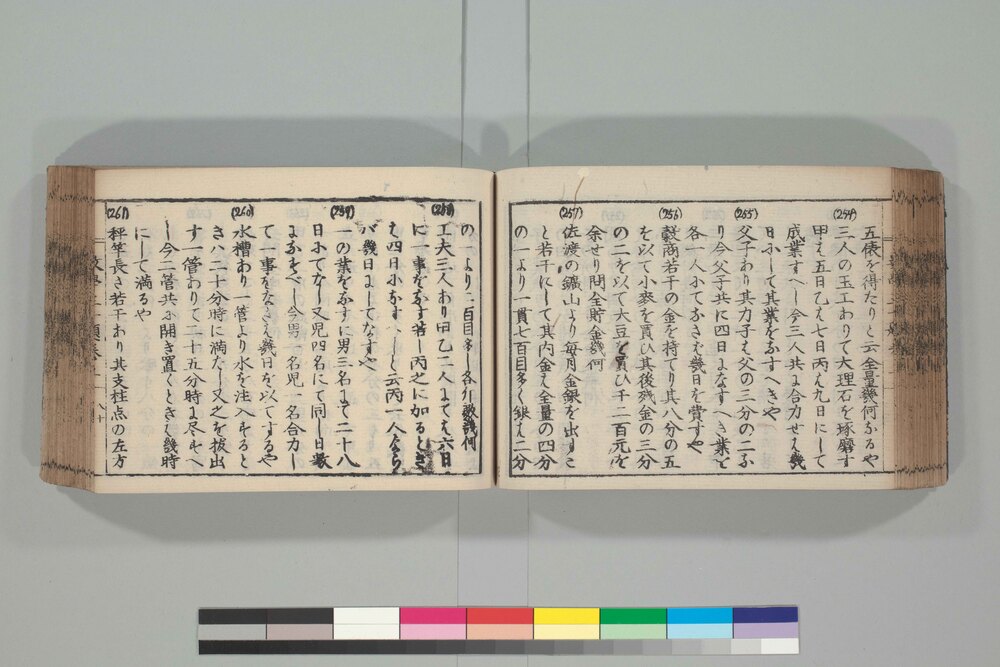 五俵を得たりと云全量幾何なるや
(254)
三人の玉工わりて大理石を琢磨す
甲え五日乙え七日丙え九日にして
成業すへし今三人共に合力せは幾
日にして其業をなすへきや
(255)
父子あり其力子は父の三分の二な
り今父子共に四日になすへき業を
各一人にてなさは幾日を費すや
(256)
穀商若干の金を持てり其八分の五
を以て小麥を買ひ其後残金の三分
の二を以て大豆を買ひ千二百元を
余せり問全貯金幾何
(257)
佐渡の鑛山より毎月金銀を出すこ
と若干にして其内金は全量の四分
の一より一貫七百目多く銀は二分
の一より二百目多し各個数幾何
(258)
工夫三人あり甲乙二人にては六日
に一事をなす若し丙之に加るとき
は四日になすへしと云丙一人なら
バ幾日にしてなすや
(259)
一の業をなすに男三名にて二十八
日にてなし又児四名にて同し日数
になすべし今男一名児一名合力し
て一事をなさは幾日を以てするや
(260)
水槽あり一管より水を注入するとき
きハ二十分時に満たし又之を拔出
す一管わりて二十五分時に尽すへ
し今二管共に開き置くときは幾時
にして満るや
(261)
秤竿長さ若干あり其支柱点の左方